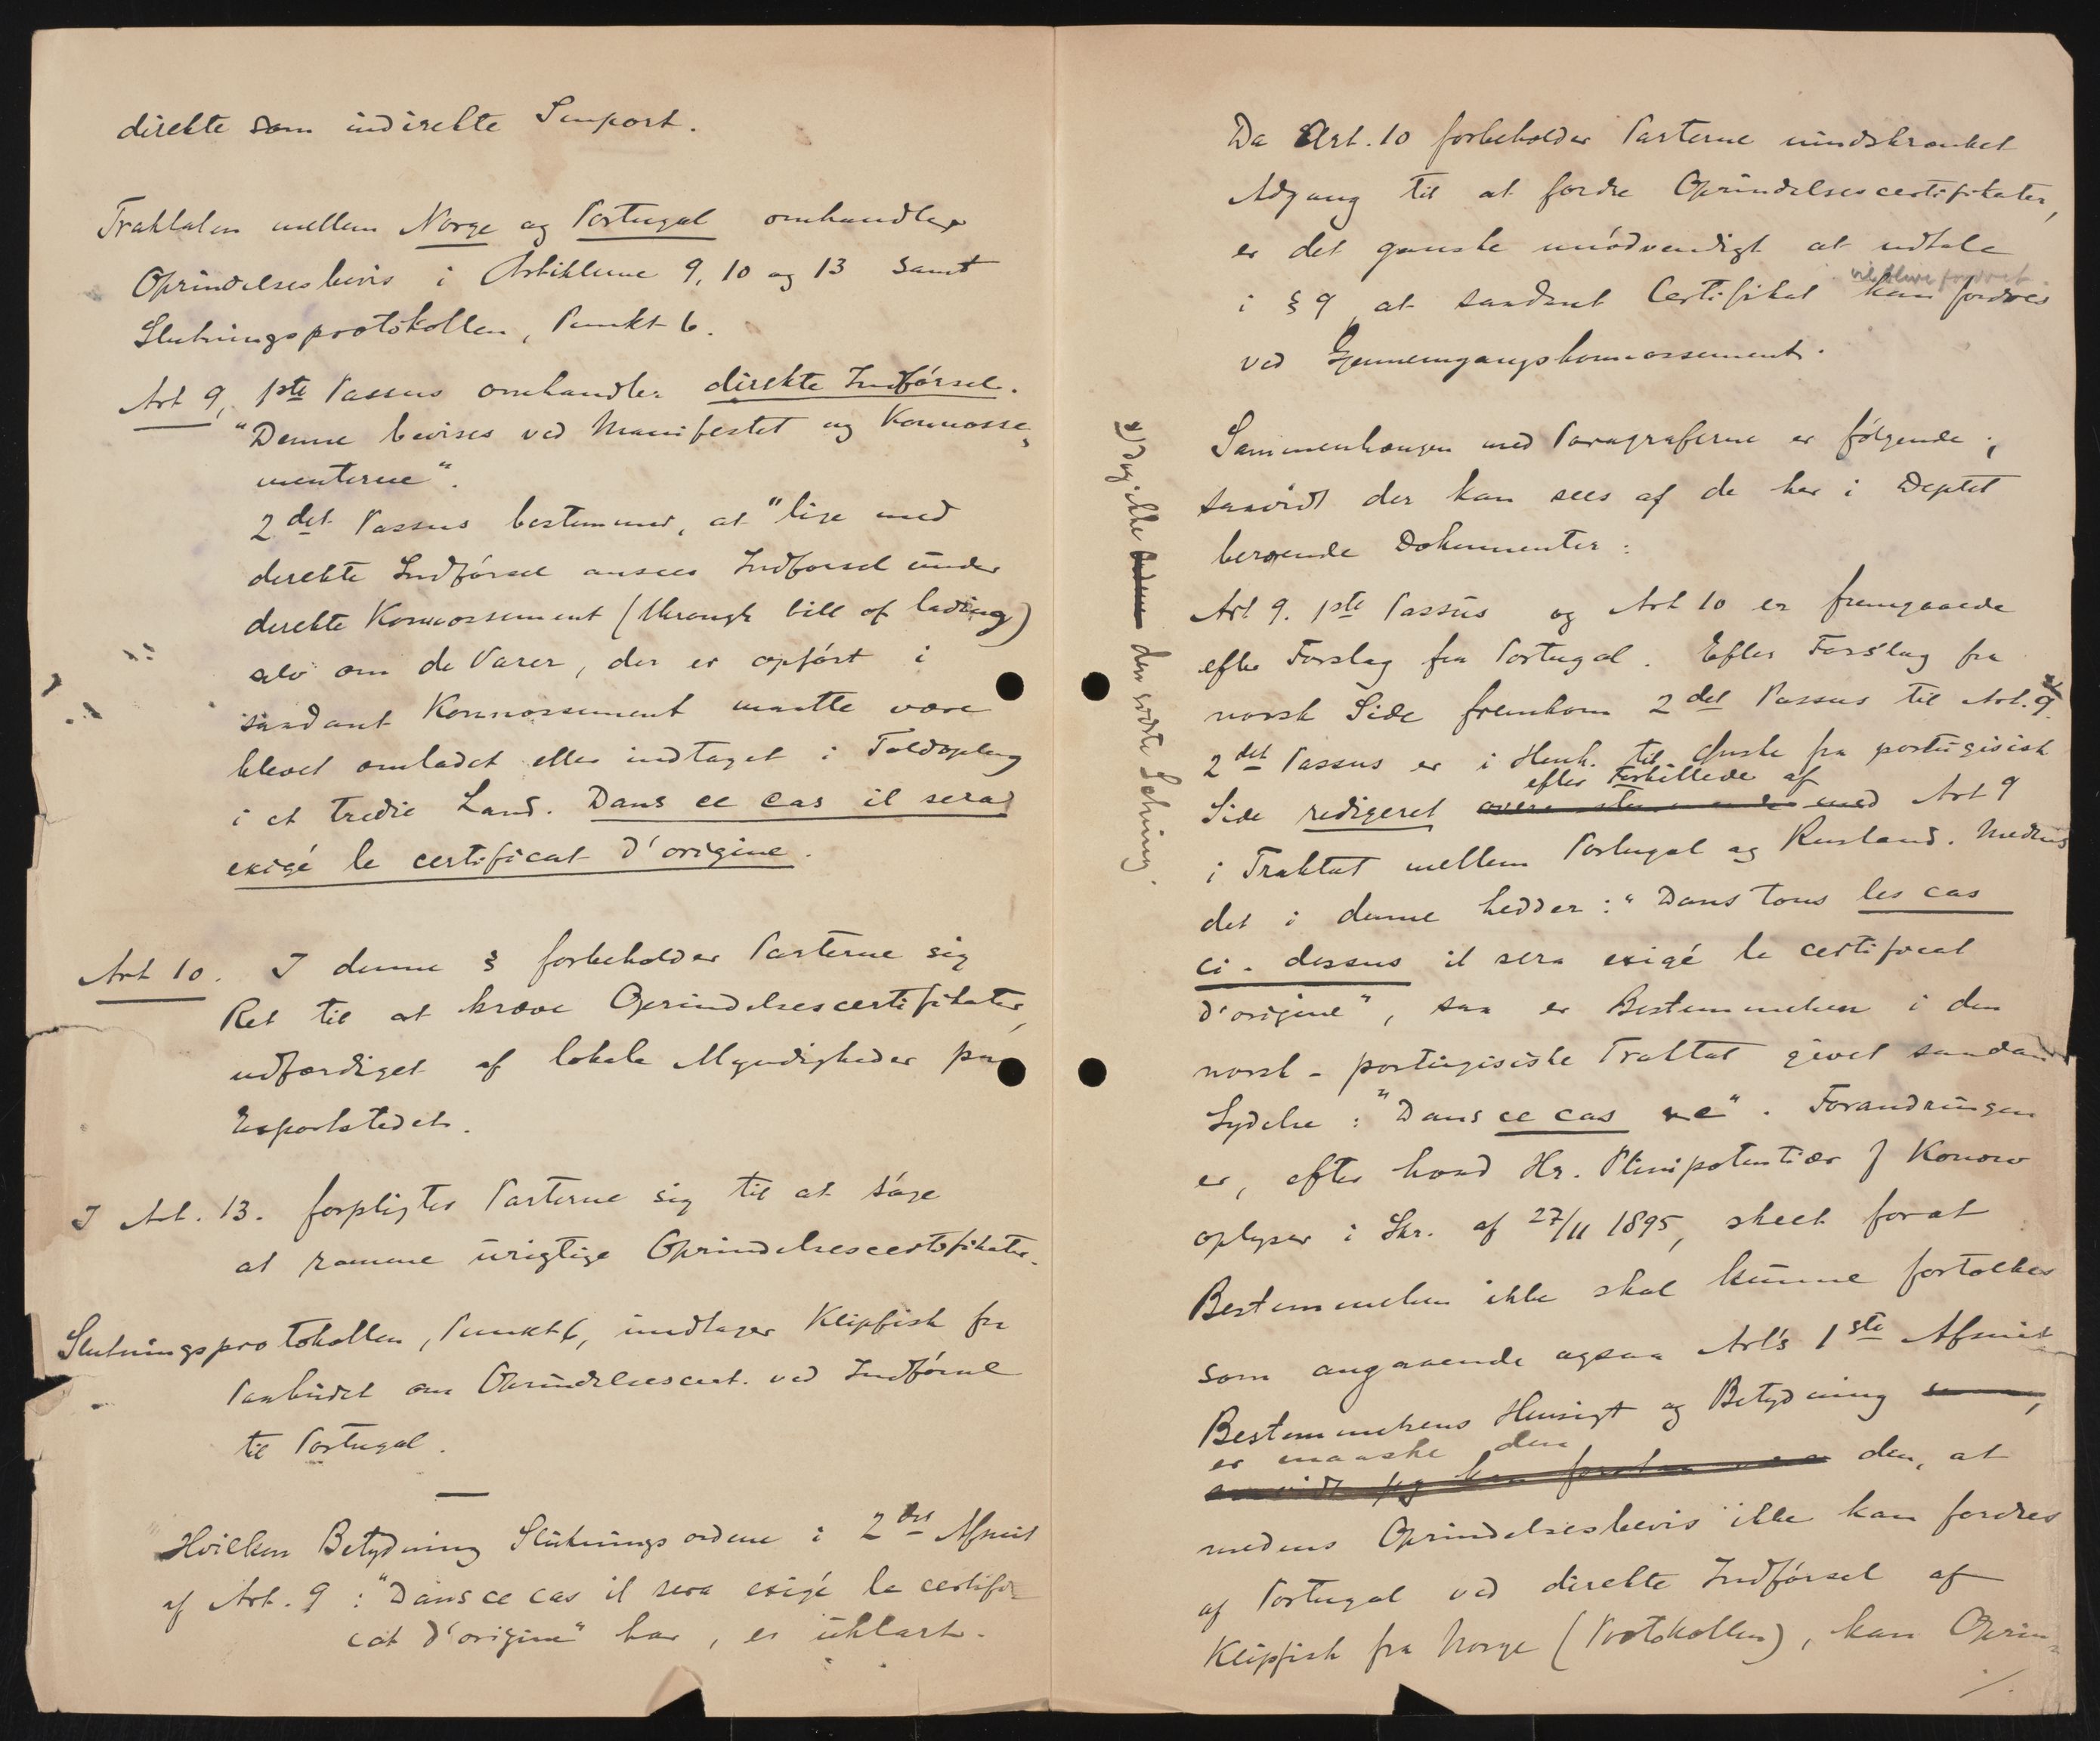 direkte som indirekte Import.
Traktaten mellem Norge og Portugal omhandler
Oprindelsesbevis i Artiklerne 9, 10 og 13 samt
Slutningsprotokollen, Punkt 6.
Art 9, 1ste Passus omhandler direkte Indførsel.
"Denne bevises ved Manifestet og Konnosse-
menterne".
2det Passus bestemmer, at "lige med
direkte Indførsel ansees Indførsel under
direkte Konnossement (through bill of lading)
selv om de Varer, der er opført i
saadant Konnossement maatte være
blevet omladet eller indtaget i Toldoplag
i et tredie Land. Dans ce cas il sera
exigé le certificat d'origine.
Art 10. I denne § forbeholder Parterne sig
Ret til at kræve Oprindelsescertifikater,
udfærdiget af lokale Myndigheder paa
Exportstedet.
I Art. 13. forpligter Parterne sig til at søge
at ramme urigtige Oprindelsescertifikater.
Slutningsprotokollen, Punkt 6, undtager Klipfisk fra
Paabudet om Oprindelsescert. ved Indførsel
til Portugal.
Hvilken Betydning Slutningsordene i 2det Afsnit
af Art. 9 : "Dans ce cas il sera exigé le certifi-
cat d'origine" har, er uklart.
Da Art. 10 forbeholder Parterne uindskrænket
Adgang til at fordre Oprindelsescertifikater,
er det ganske unødvendigt at udtale
vil blive fordret
i § 9, at saadant Certifikat kan fordres
ved Gjennemgangskonnossement.
Sammenhængen med Paragraferne er følgende,
saavidt der kan sees af de her i Deptet
beroende Dokumenter:
Art 9. 1ste Passus og Art 10 er fremgaaede
efter Forslag fra Portugal. Efter Forslag fra
norsk Side fremkom 2det Passus til Art. 9. x)
2det Passus er i Henh. til Ønske fra portugisisk
efter Forbillede af
Side redigeret overensstemmende med Art 9
i Traktat mellem Portugal og Rusland. Medens
det i denne hedder: "Dans tous les cas
ci-dessus il sera exigé le certificat
d'origine", saa er Bestemmelsen i den
norsk-portugisiske Traktat givet saadan
Lydelse: "Dans ce cas &c". Forandringen
er, efter hvad Hr. Plenipotentiær J Konow
oplyser i Skr. af 27/11 1895, skeet forat
Bestemmelsen ikke skal kunne fortolkes
som angaaende ogsaa Art's 1ste Afsnit
Bestemmelsens Hensigt og Betydning
er maaske den
saavidt jeg kan forstaa den, at
medens Oprindelsesbevis ikke kan fordres
af Portugal ved direkte Indførsel af
Klipfisk fra Norge (Protokollen), kan Oprin-
./.
x) Dog ikke den sidste Sætning.